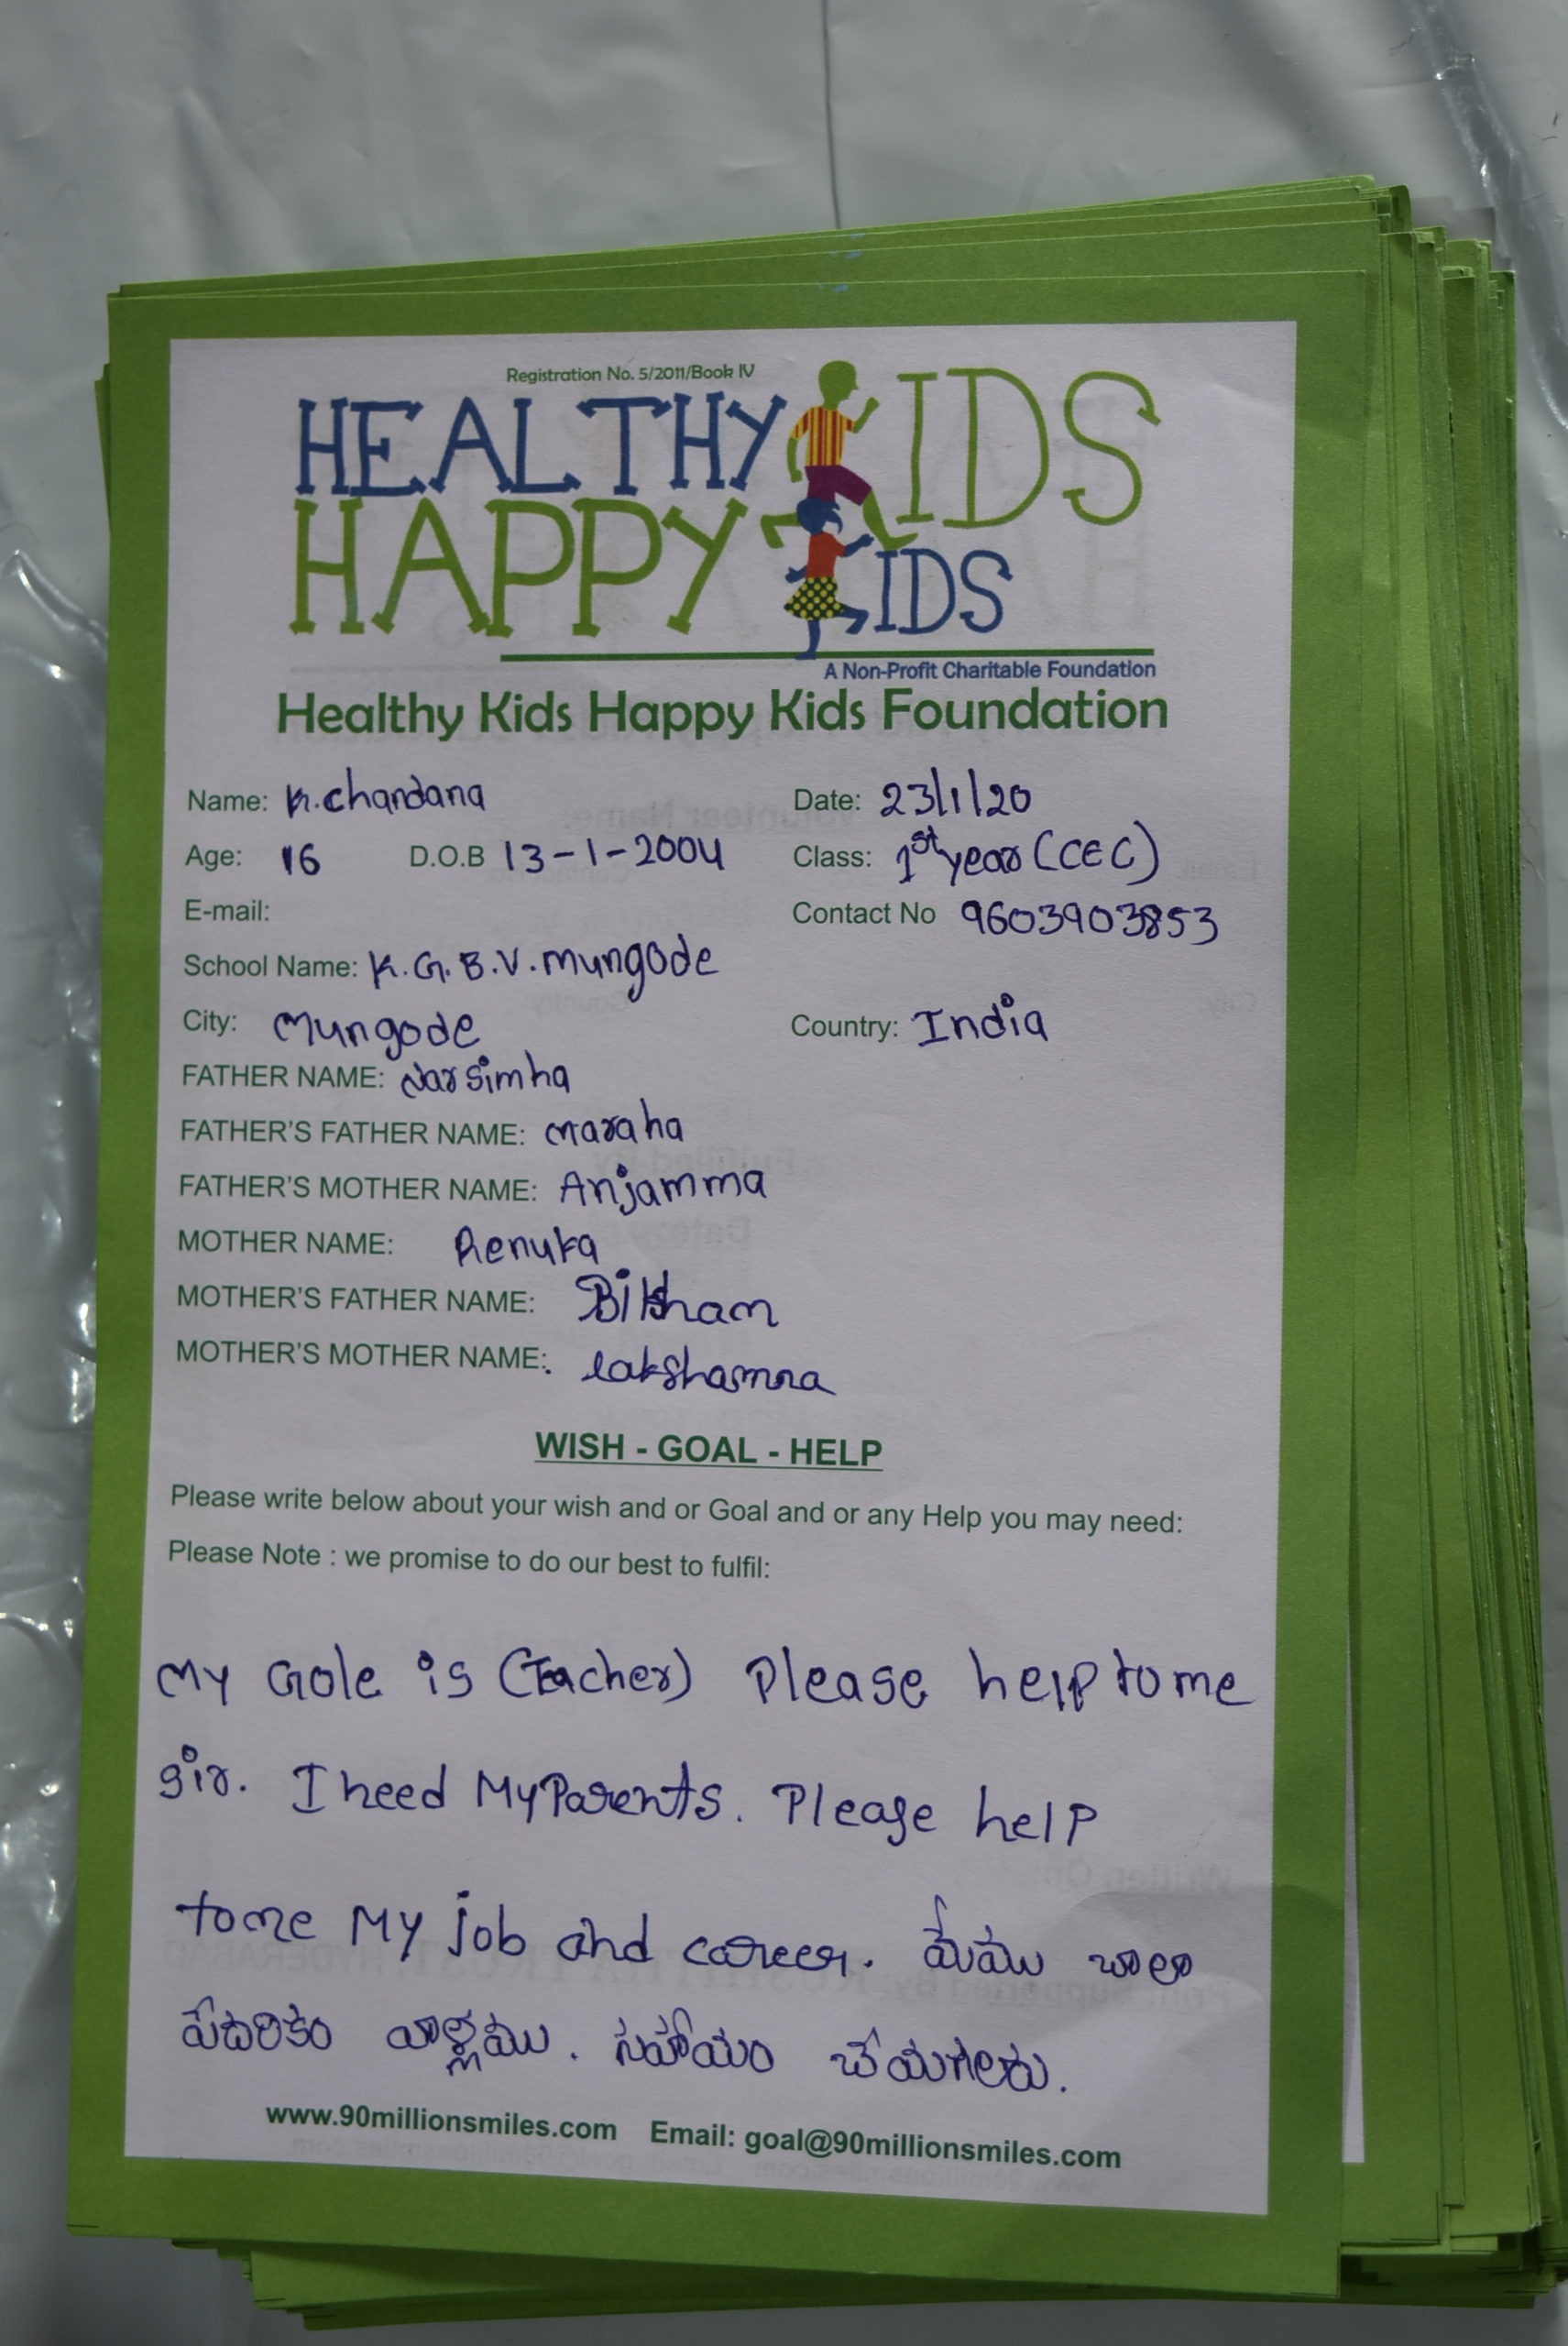 Registration No. 5/2011/Book IV
HEALTHY KIDS
HAPPY KIDS
A Non-Profit Charitable Foundation
Healthy Kids Happy Kids Foundation
Name: K.chandana Date: 23/1/20
Age: 16 D.O.B 13-1-2004 Class: 1st year (CEC)
E-mail: Contact No 9603903853
School Name: K.G.B.V.mungode
City: Mungode Country: India
FATHER NAME: Narsimha
FATHER'S FATHER NAME: maraha
FATHER'S MOTHER NAME: Anjamma
MOTHER NAME: Renuka
MOTHER'S FATHER NAME: Biksham
MOTHER'S MOTHER NAME: lakshamma
WISH - GOAL - HELP
Please write below about your wish and or Goal and or any Help you may need:
Please Note : we promise to do our best to fulfil:
My Gole is (Tacher) Please help to me
sir. I need My Parents. Please help
tome My job and career. మేము చాలా
పేదరికం వాళ్లము. సహాయం చేయగలరు.
www.90millionsmiles.com Email: goal@90millionsmiles.com